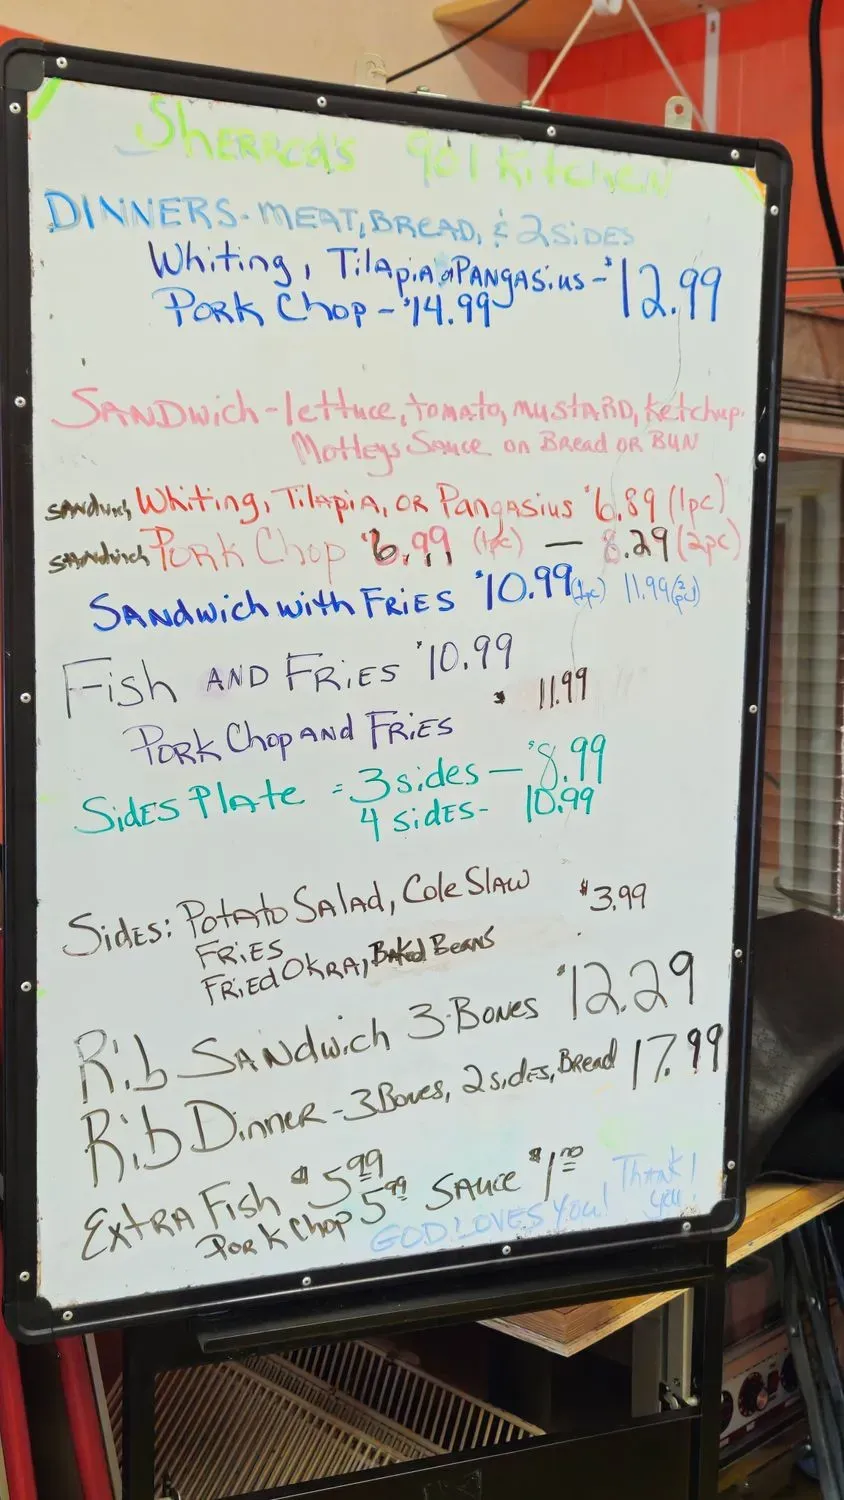 Sherrod's 901 Kitchen
DINNERS - MEAT, BREAD, & 2 SIDES
Whiting, Tilapia or Pangasius - $12.99
Pork Chop - $14.99
SANDwich - lettuce, tomato, mustard, ketchup.
Motleys Sauce on Bread or BUN
SANdwich Whiting, Tilapia, OR Pangasius $6.89 (1pc)
SANdwich Pork Chop $6.99 (1pc) — 8.29 (2pc)
SANdwich with FRIES $10.99 (1pc) 11.99 (2pc)
Fish AND FRIES $10.99
Pork Chop AND FRIES $11.99
Sides Plate = 3 sides — $8.99
4 sides - 10.99
Sides: Potato Salad, Cole Slaw $3.99
FRIES
Fried Okra, Baked Beans
Rib Sandwich 3-Bones $12.29
Rib Dinner - 3 Bones, 2 sides, Bread 17.99
Extra Fish $5.99 Sauce $1.00
Pork Chop 5.99
GOD LOVES YOU! THANK YOU!